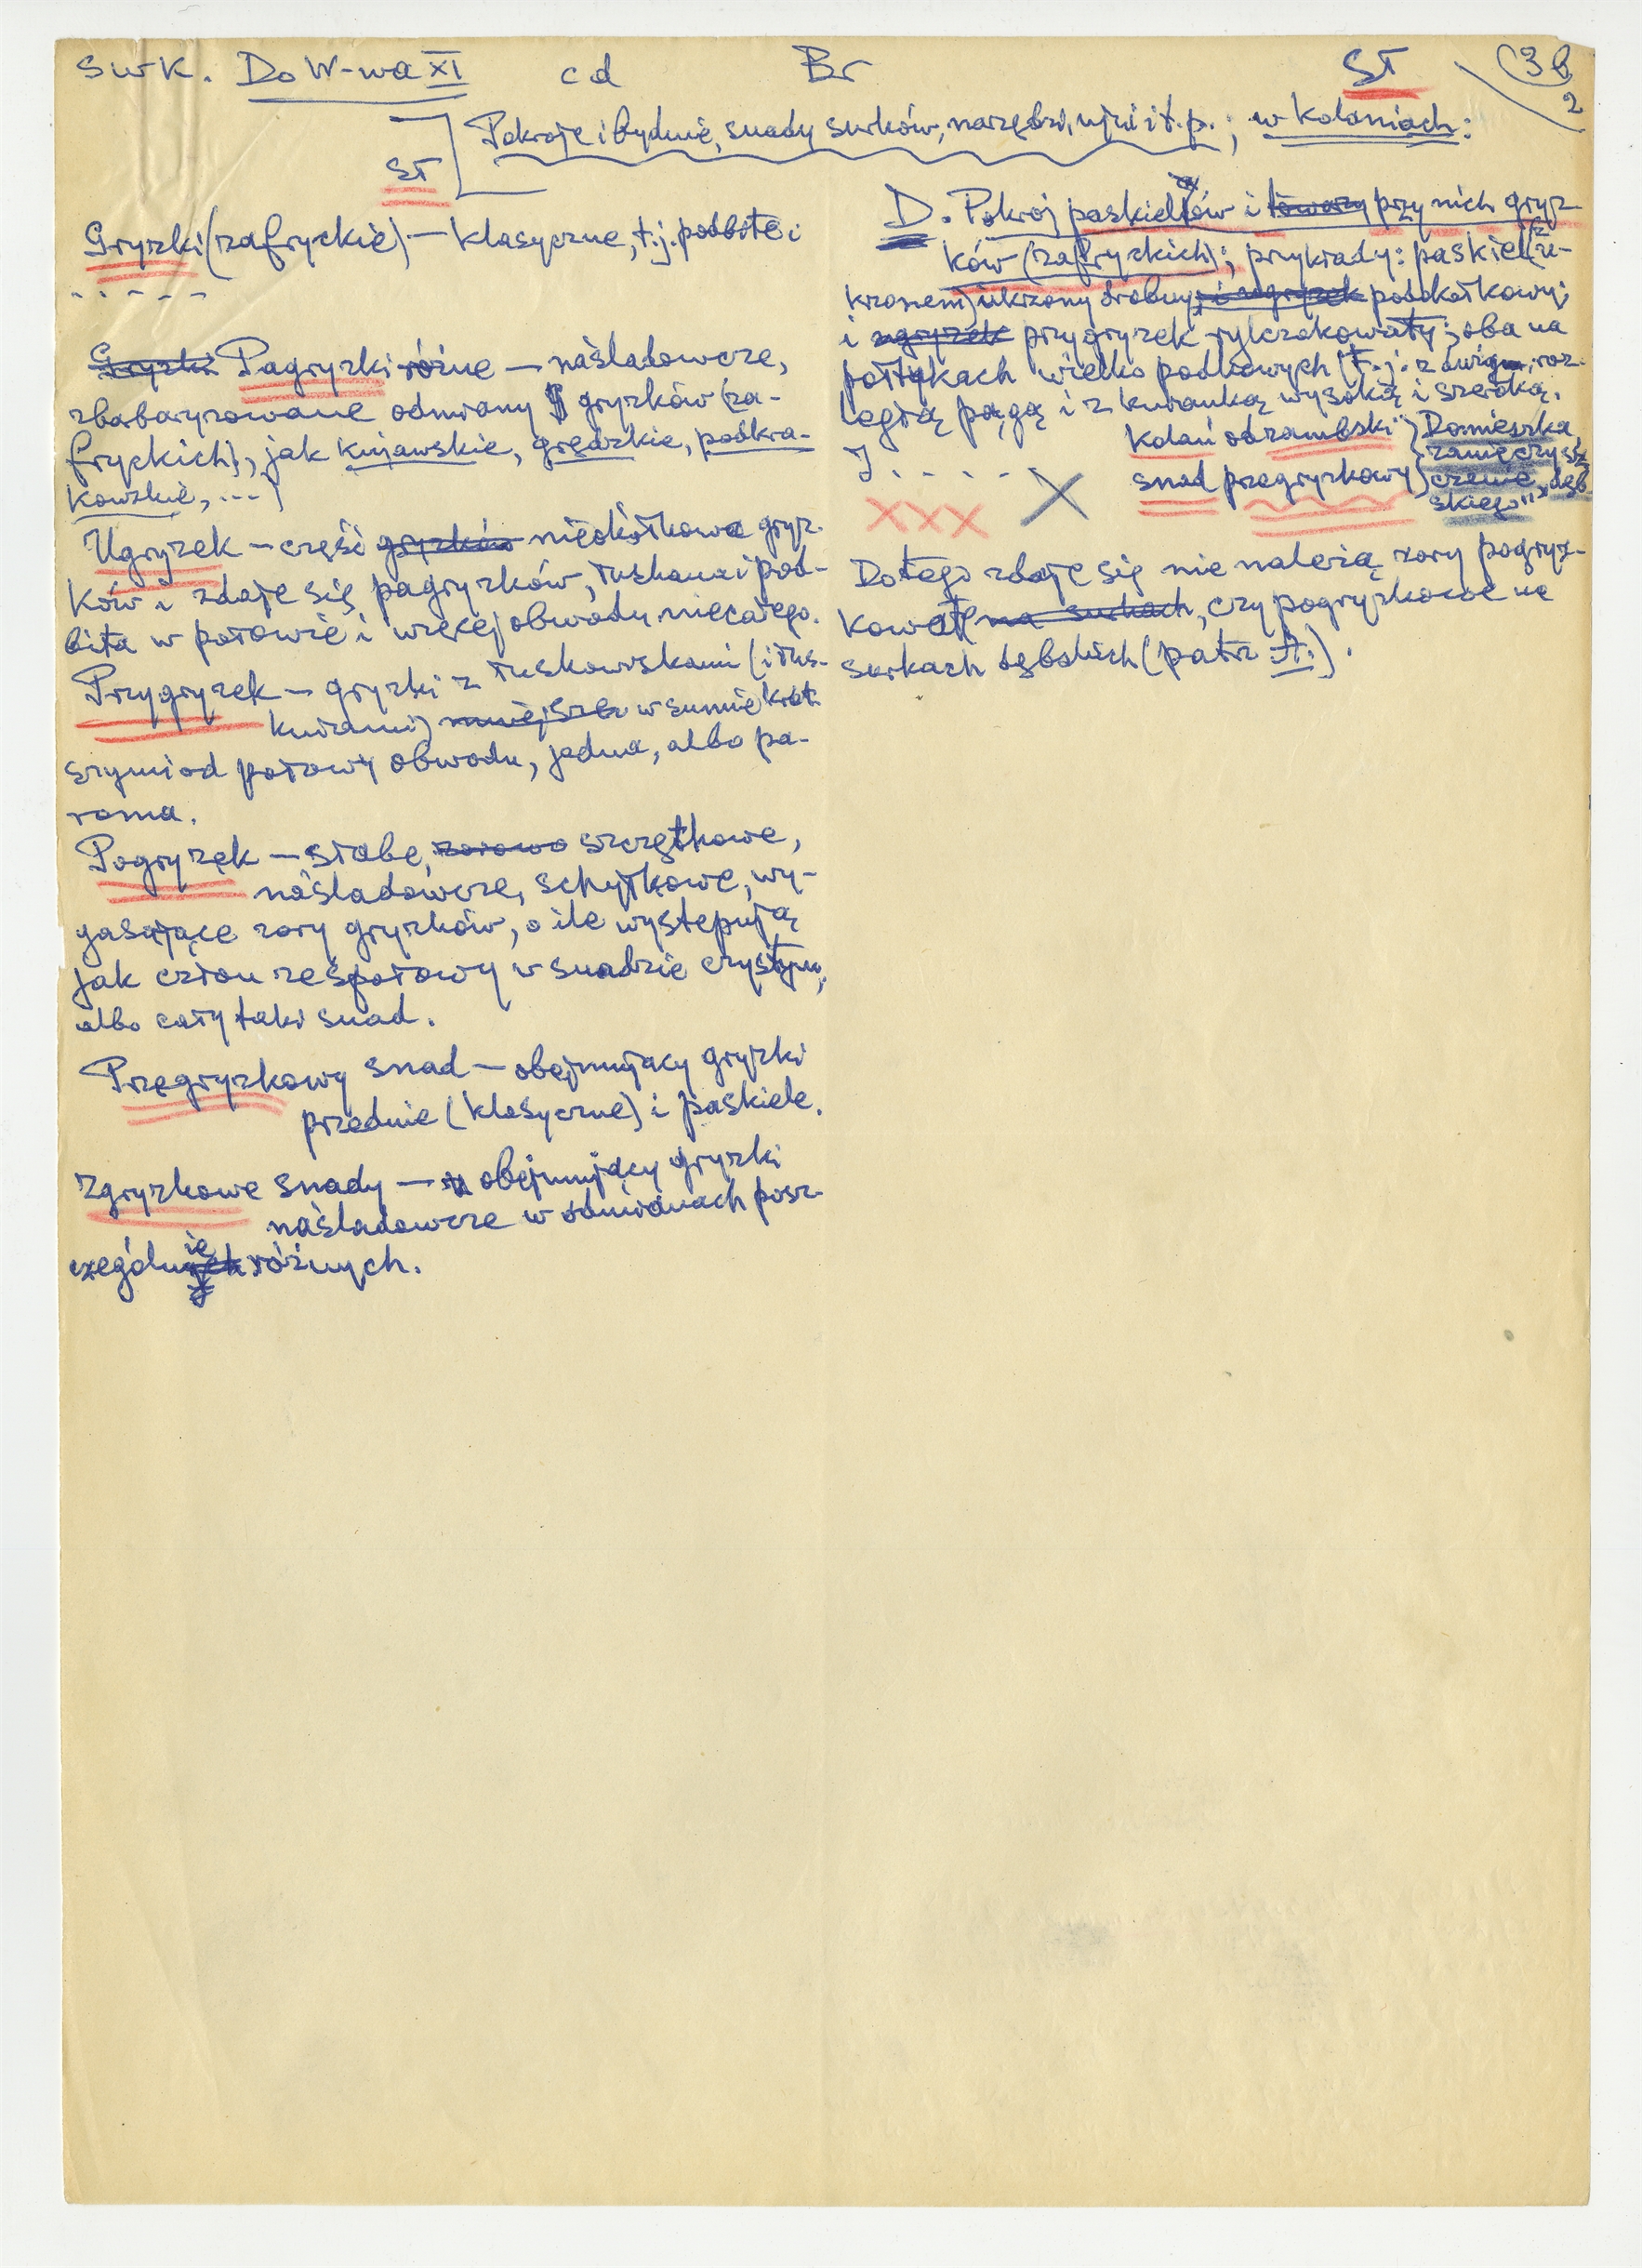 swk. Do W-wa XI cd Br ST 3b
2
Pokroje i bydnie, snady surków, narzędzi, i t. p.; w kolaniach:
ST
Gryzki (zafryckie) — klasyczne, t.j. podbite i
- - - - -
Gryzki Pagryzki różne — naśladowcze,
zbabaryzowane odmiany gryzków (za-
fryckich), jak kujawskie, grędzkie, podkra-
kowskie, ...)
Ugryzek — część gryzków nieokółkowa gryz-
ków i zdaje się pagryzków, łuskana i pod-
bita w połowie i więcej obwodu niecałego.
Przygryzek — gryzki z łuskowiskami (i łus-
kwiami) mniejsze w sumie krót-
szymi od połowy obwodu, jedna, albo pa-
roma.
Pogryzek — słabe, szczątkowe,
naśladowcze, schyłkowe, wy-
gasające zory gryzków, o ile wystepują
jak człon zespołowy w snadzie czystym,
albo cały taki snad.
Przegryzkowy snad — obejmujący gryzki
przednie (klasyczne) i paskiele.
Zgryzkowe snady — obejmujący gryzki
naśladowcze w odmianach posz-
czególnie różnych.
D. Pokrój paskielków i towarz przy nich gryz-
ków (zafryckich); przykłady: paskiel (z u-
krzonem) ukrzony drobny, i ugryzek półokółkowy;
i ugryzek przygryzek rylczakowaty; oba na
połtykach wielko podkowych (t.j. z roz-
ległą pągą i z kwranką wysoką i szeroką.
J . . . . -
Kolań odrzambski } Domieszka
snad przegryzkowy } zamięczysz
czenie „dęb
skiego"
XXX X
Do tego zdaje się nie należą zory pogryz-
kowate na surkach, czy pogryzkowe na
surkach dębskich (patrz A.).